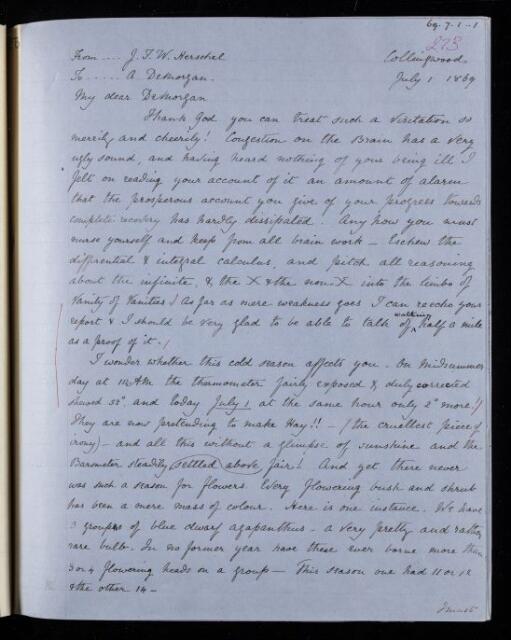 69.7.1-1
273
From .... J. F. W. Herschel Collingwood.
To ..... A. DeMorgan. July 1 1869
My dear DeMorgan
Thank God you can treat such a visitation so
merrily and cheerily! Congestion on the Brain has a very
ugly sound, and having heard nothing of your being ill I
felt on reading your account of it an amount of alarm
that the prosperous account you give of your progress towards
complete recovery has hardly dissipated. Any how you must
nurse yourself and keep from all brain work - Eschew the
differential & integral calculus, and pitch all reasoning
about the infinite, & the X & the non-X into the limbo of
Vanity of Vanities! As far as mere weakness goes I can reecho your
report & I should be very glad to be able to talk of walking half a mile
as a proof of it.
I wonder whether this cold season affects you. On Midsummer
day at 11 AM the thermometer fairly exposed & duly corrected
shewed 52° and today July 1 at the same hour only 2° more!!
They are now pretending to make Hay!! - (the cruellest piece of
irony) - and all this without a glimpse of sunshine and the
Barometer steadily settled above fair! And yet there never
was such a season for flowers. Every flowering bush and shrub
has been a mere mass of colour. Here is one instance. We have
3 groups of blue dwarf agapanthus - a very pretty and rather
rare bulb. In no former year have these ever borne more than
3 or 4 flowering heads on a group - This season one had 11 or 12
& the other 14 -
I must